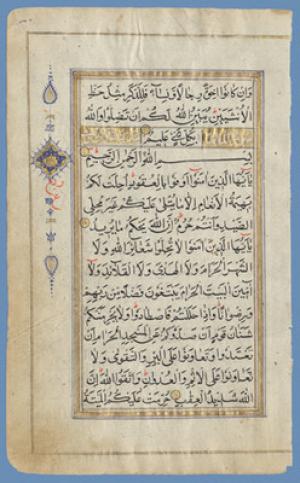 وَإِن كَانُوا إِخْوَةً رِجَالًا وَنِسَاءً فَلِلذَّكَرِ مِثْلُ حَظِّ
الْأُنْثَيَيْنِ يُبَيِّنُ اللَّهُ لَكُمْ أَنْ تَضِلُّوا وَاللَّهُ
بِكُلِّ شَيْءٍ عَلِيمٌ
بِسْمِ اللَّهِ الرَّحْمَنِ الرَّحِيمِ
يَا أَيُّهَا الَّذِينَ آمَنُوا أَوْفُوا بِالْعُقُودِ أُحِلَّتْ لَكُمْ
بَهِيمَةُ الْأَنْعَامِ إِلَّا مَا يُتْلَى عَلَيْكُمْ غَيْرَ مُحِلِّي
الصَّيْدِ وَأَنْتُمْ حُرُمٌ إِنَّ اللَّهَ يَحْكُمُ مَا يُرِيدُ
يَا أَيُّهَا الَّذِينَ آمَنُوا لَا تُحِلُّوا شَعَائِرَ اللَّهِ وَلَا
الشَّهْرَ الْحَرَامَ وَلَا الْهَدْيَ وَلَا الْقَلَائِدَ وَلَا
آمِّينَ الْبَيْتَ الْحَرَامَ يَبْتَغُونَ فَضْلًا مِنْ رَبِّهِمْ
وَرِضْوَانًا وَإِذَا حَلَلْتُمْ فَاصْطَادُوا وَلَا يَجْرِمَنَّكُمْ
شَنَآنُ قَوْمٍ أَنْ صَدُّوكُمْ عَنِ الْمَسْجِدِ الْحَرَامِ أَنْ
تَعْتَدُوا وَتَعَاوَنُوا عَلَى الْبِرِّ وَالتَّقْوَى وَلَا
تَعَاوَنُوا عَلَى الْإِثْمِ وَالْعُدْوَانِ وَاتَّقُوا اللَّهَ إِنَّ
اللَّهَ شَدِيدُ الْعِقَابِ حُرِّمَتْ عَلَيْكُمُ الْمَيْتَةُ